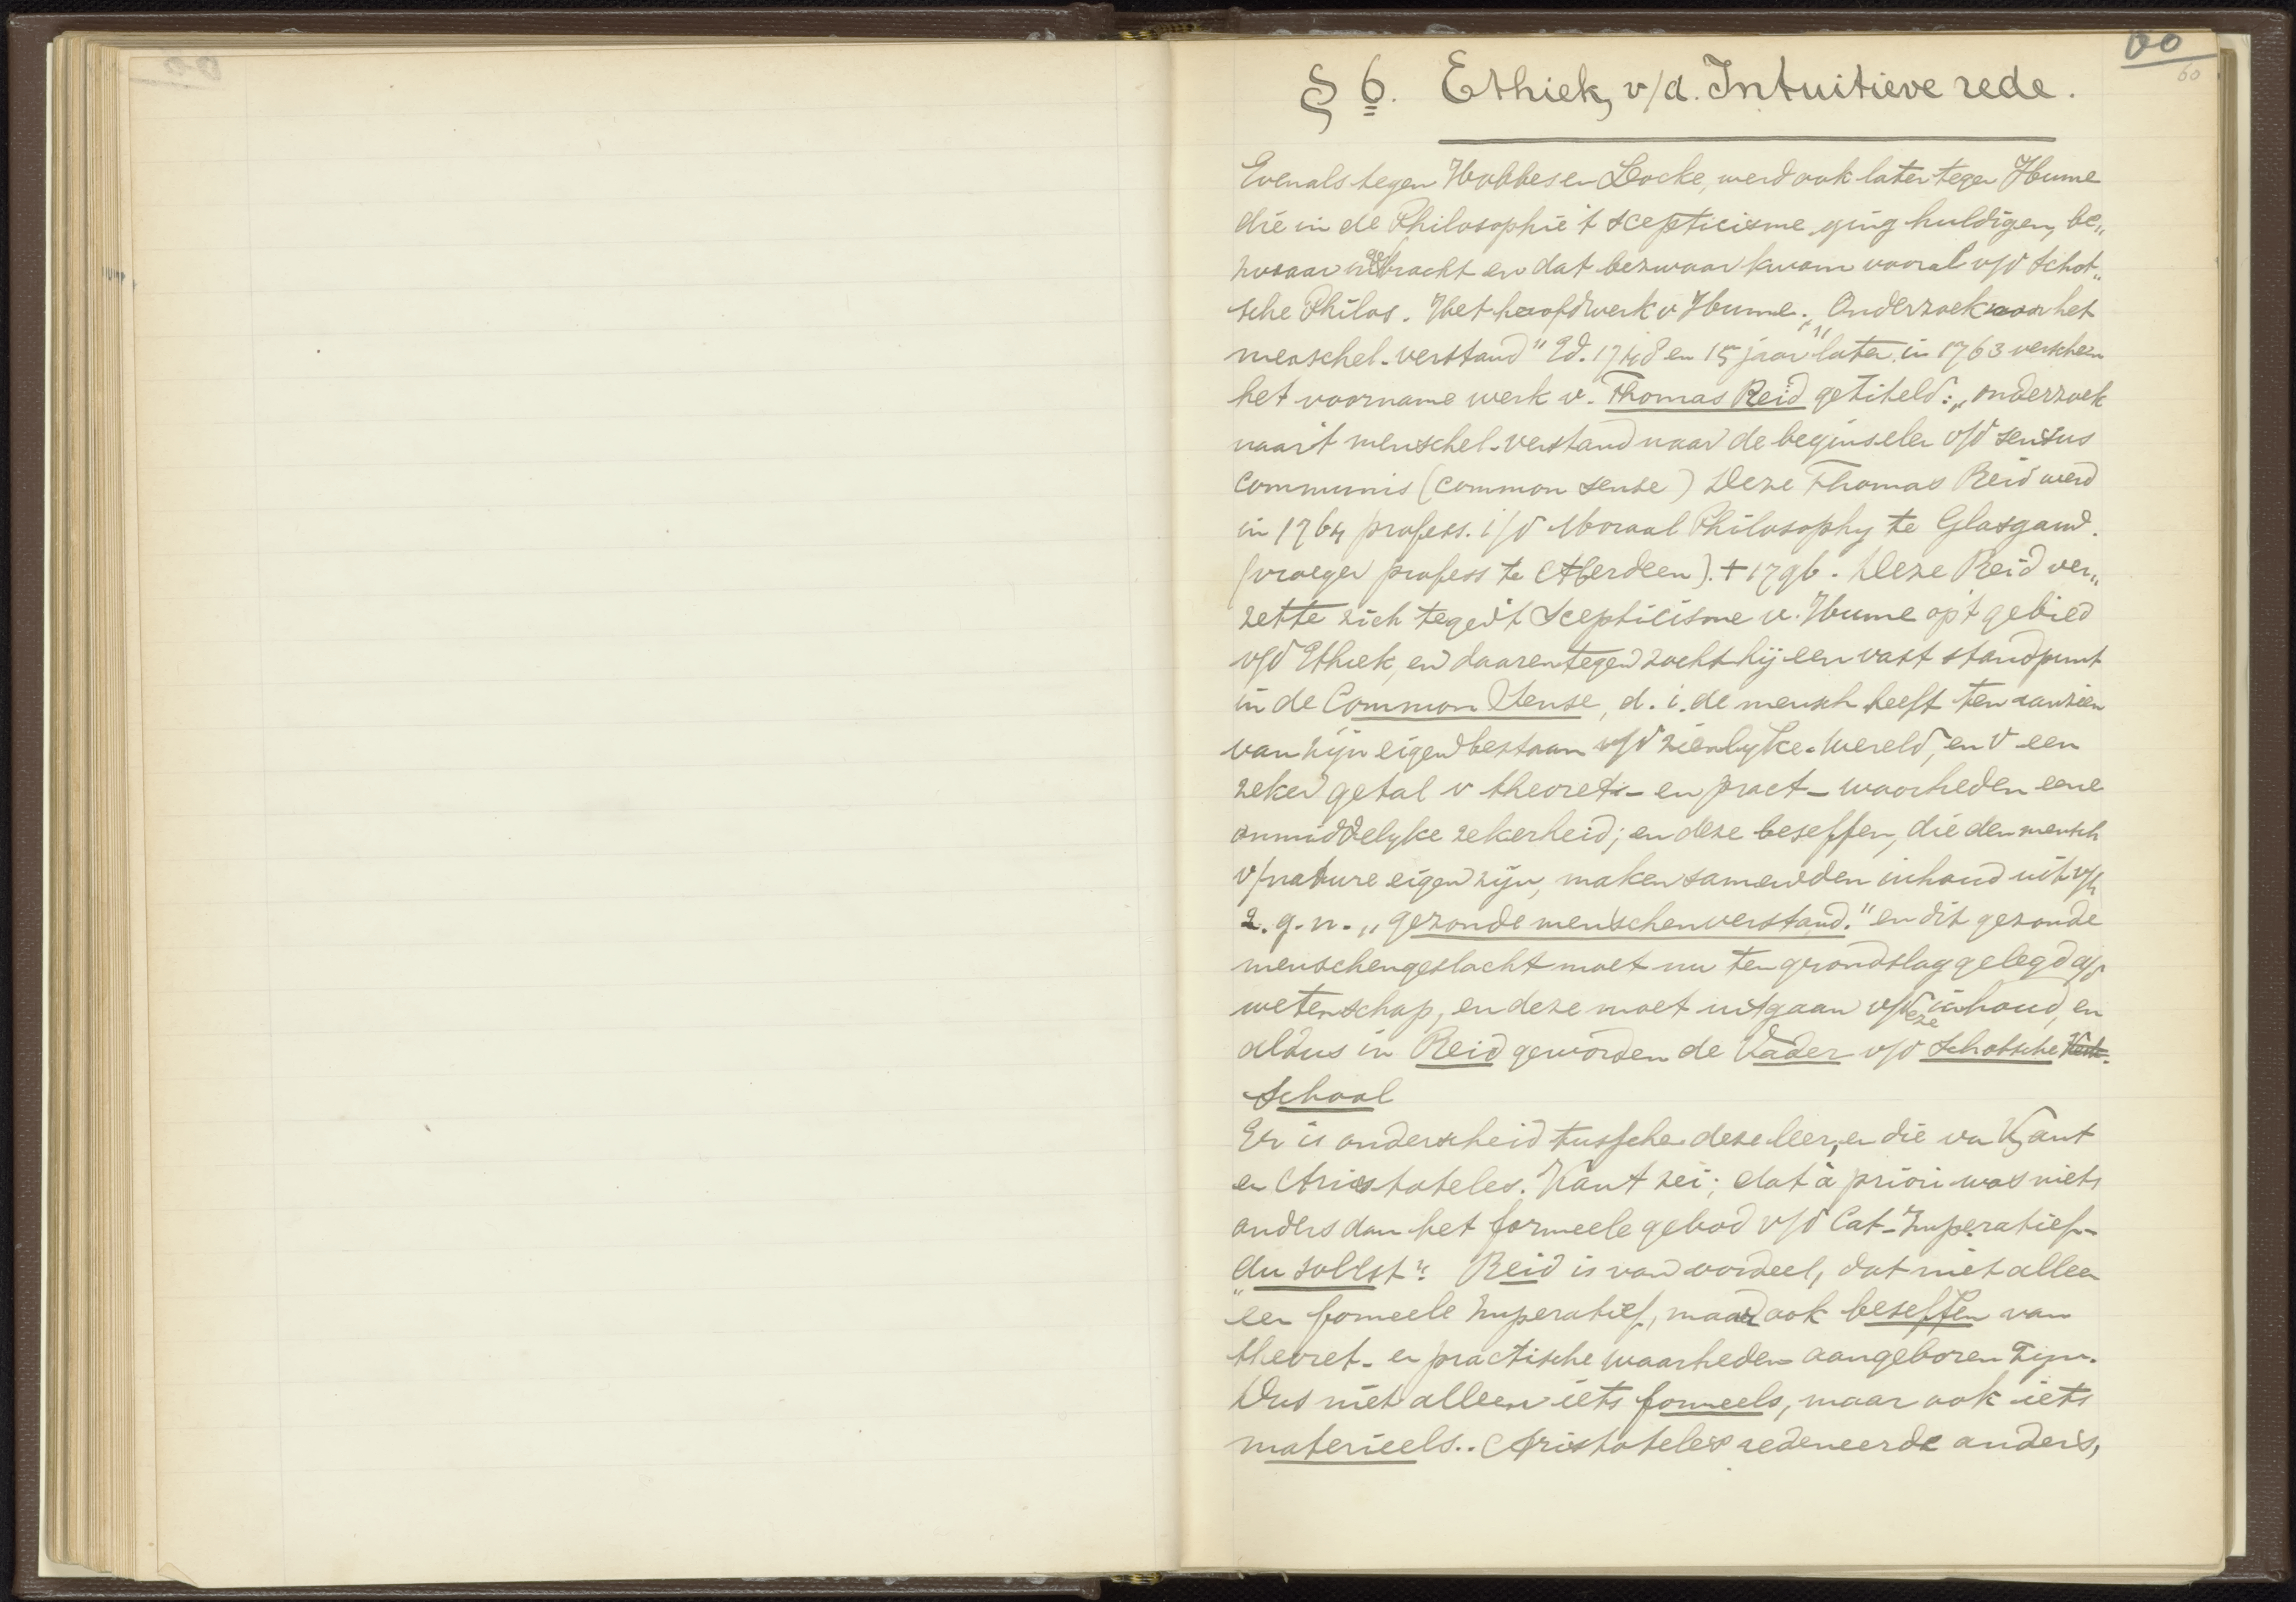 60
60
§ 6. Ethiek v/d. Intuitieve rede.
Evenals tegen Hobbes en Locke, werd ook later tegen Hume
die in de Philosophie 't scepticisme ging huldigen, be„
zwaar ingebracht en dat bezwaar kwam vooral v/d Schot„
sche Philos. Het hoofdwerk v Hume: „Onderzoek naar het
menschel. verstand" Ed. 1748 en 15 jaar later in 1763 verscheen
het voorname werk v. Thomas Reid getiteld: „onderzoek
naar 't menschel. verstand naar de beginselen v/d sensus
communis (common sense) Deze Thomas Reid werd
in 1764 profess. i/d Moraal Philosophy te Glasgauw.
(vroeger profess te Aberdeen). † 1796. Deze Reid ver„
zette zich tegen 't Scepticisme v. Hume op 't gebied
v/d Ethiek, en daarentegen zocht hij een vast standpunt
in de Common Sense, d. i. de mensch heeft ten aanzien
van zijn eigen bestaan v/d zienlyke wereld, en v een
zeker getal v theoret- en pract- waarheden eene
onmiddelyke zekerheid; en deze beseffen, die den mensch
v/nature eigen zijn, maken samen den inhoud uit v/h
z. g. n. „gezonde menschenverstand." en dit gezonde
menschengeslacht moet nu ten grondslag gelegd a/d
wetenschap, en deze moet uitgaan v/deze inhoud, en
aldus in Reid geworden de Vader v/d Schotsche
School
Er is onderscheid tussche deze leer, en die va Kant
en Aristoteles. Kant zei; dat à priori was niets
anders dan het formeele gebod v/d Cat-Imperatief-
„du sollst". Reid is van oordeel, dat niet alleen
een fomeele Imperatief, maar ook beseffen van
theoret- en practische waarheden aangeboren zijn.
Dus niet alleen iets formeels, maar ook iets
materieels.. Aristoteles redeneerde anders,